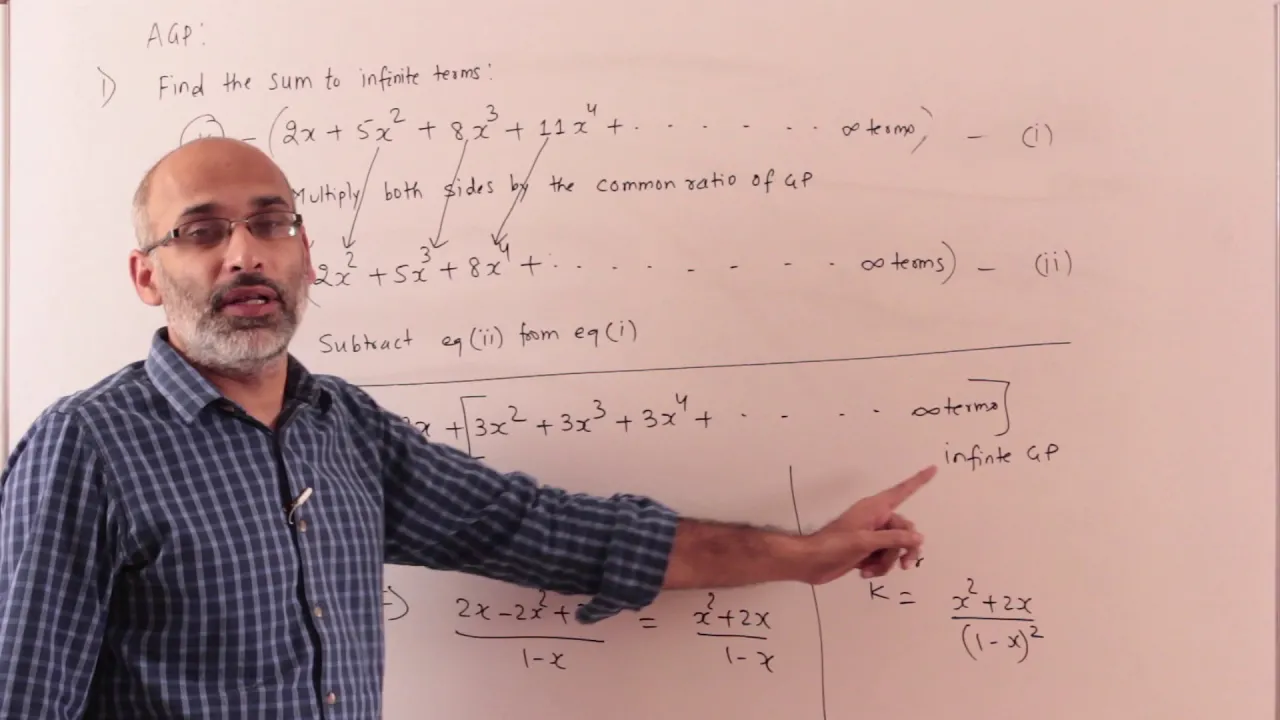 AGP:
1) Find the sum to infinite terms:
= (2x + 5x² + 8x³ + 11x⁴ + · · · · · · ∞ terms) — (i)
Multiply both sides by the common ratio of GP
2x² + 5x³ + 8x⁴ + · · · · · · · · ∞ terms) — (ii)
Subtract eq(ii) from eq(i)
x + [3x² + 3x³ + 3x⁴ + · · · · ∞ terms]
infinte GP
2x - 2x² + / 1 - x = x² + 2x / 1 - x
K = x² + 2x / (1 - x)²